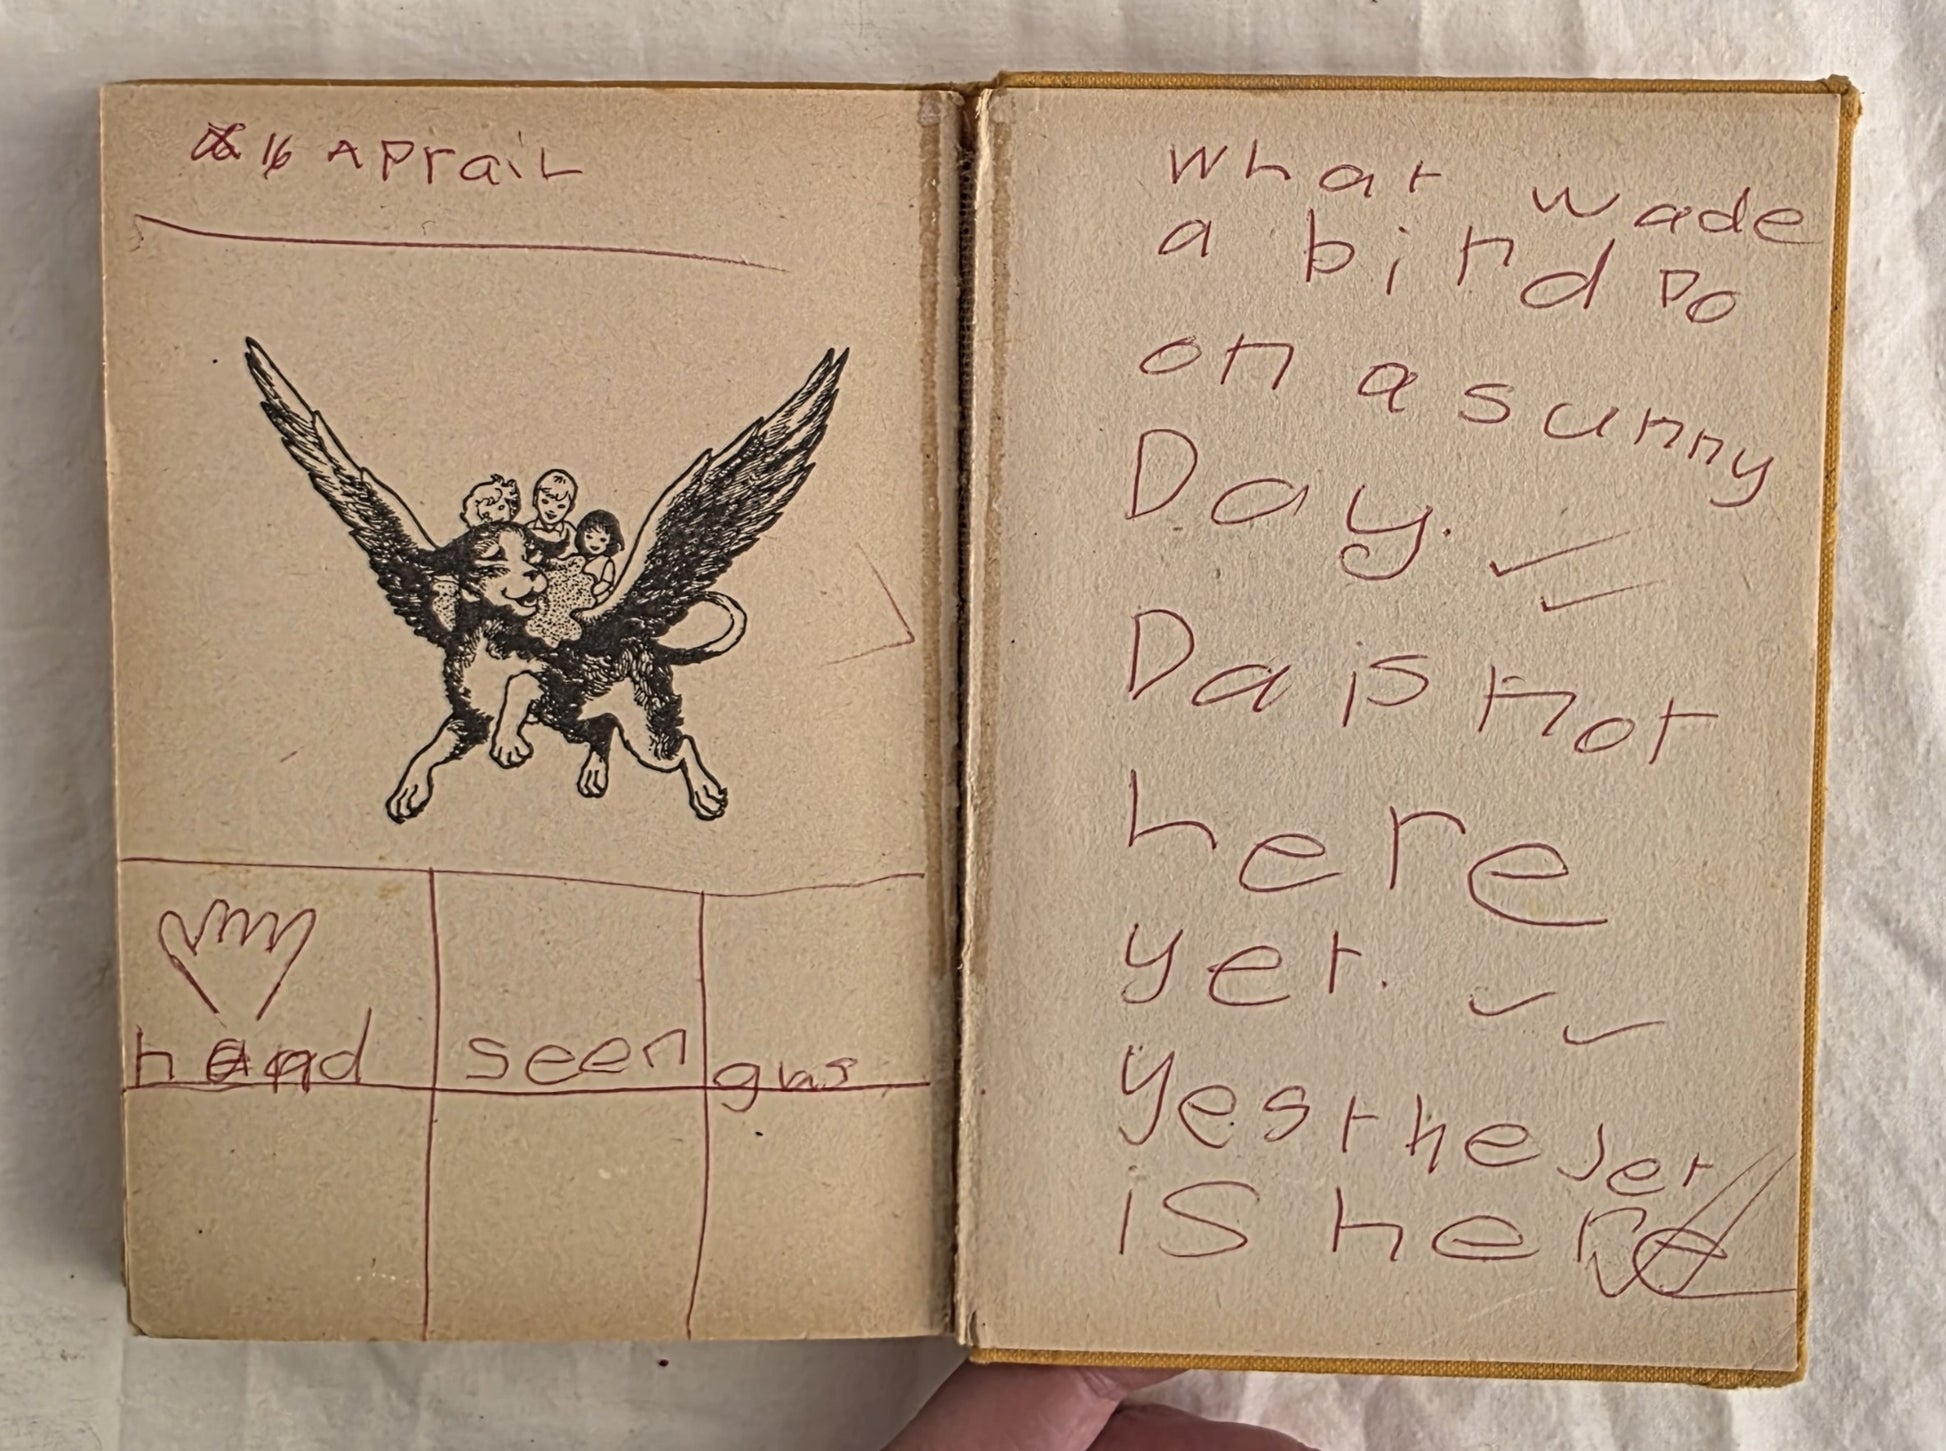 16 APraiL
hand
seen
gus
what wade
a bird Do
on a sunny
Day.
Da is not
here
yet.
Yes the Jet
is here